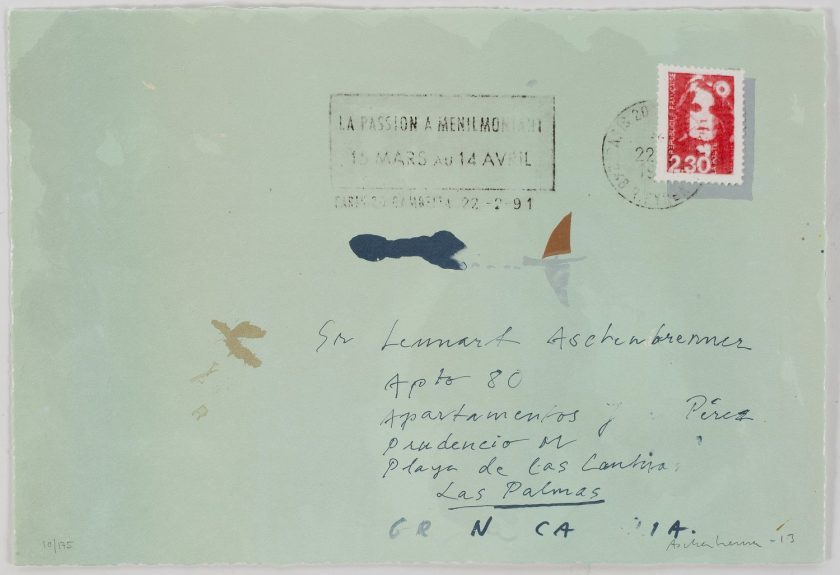 LA PASSION A MENILMONTANT
15 MARS AU 14 AVRIL
PARIS 20 GAMBETTA 22 -2-91
REPUBLIQUE FRANÇAISE
2,30
22
19
Sr Lennart Aschenbrenner
Apto 80
Apartamentos y Pérez
Prudencio M
Playa de las
Las Palmas
GR N CA IA.
10/175
Aschenbrenner -13